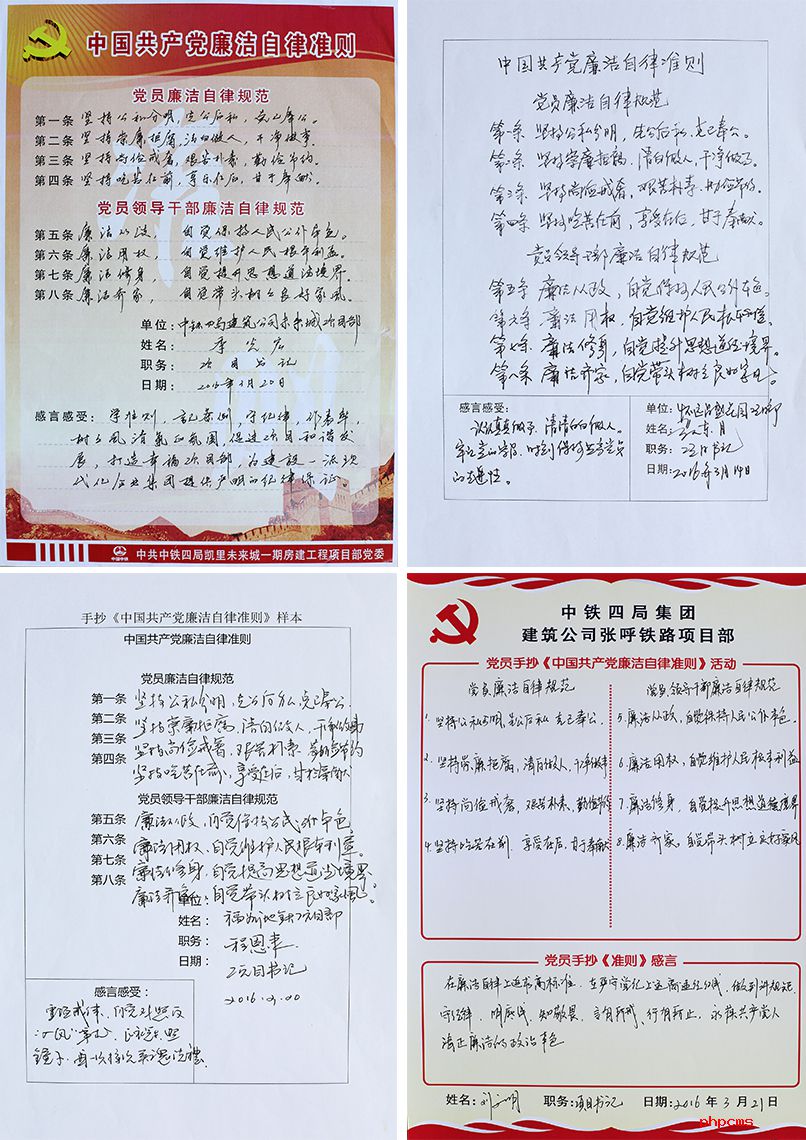 中国共产党廉洁自律准则
党员廉洁自律规范
第一条 坚持公私分明,先公后私,克己奉公。
第二条 坚持崇廉拒腐,清白做人,干净做事。
第三条 坚持尚俭戒奢,艰苦朴素,勤俭节约。
第四条 坚持吃苦在前,享乐在后,甘于奉献。
党员领导干部廉洁自律规范
第五条 廉洁从政,自觉保持人民公仆本色。
第六条 廉洁用权,自觉维护人民根本利益。
第七条 廉洁修身,自觉提升思想道德境界。
第八条 廉洁齐家,自觉带头树立良好家风。
单位:中铁四局建筑公司未来城项目部
姓名:
职务:项目书记
日期:2016年3月20日
感言感受:学准则,记条例,守纪律,
树立风清气正的氛围,促进项目和谐发
展,打造幸福项目部,为建设一流现
代化企业集团提供严明的纪律保证。
中国中铁
中共中铁四局凯里未来城一期房建工程项目部党委
中国共产党廉洁自律准则
党员廉洁自律规范
第一条 坚持公私分明,先公后私,克己奉公。
第二条 坚持崇廉拒腐,清白做人,干净做事。
第三条 坚持尚俭戒奢,艰苦朴素,勤俭节约。
第四条 坚持吃苦在前,享受在后,甘于奉献。
党员领导干部廉洁自律规范
第五条 廉洁从政,自觉保持人民公仆本色。
第六条 廉洁用权,自觉维护人民根本利益。
第七条 廉洁修身,自觉提升思想道德境界。
第八条 廉洁齐家,自觉带头树立良好家风。
感言感受:
认认真真做事,清清白白做人。
单位:
姓名:
职务:项目书记
日期:2016年3月19日
手抄《中国共产党廉洁自律准则》样本
中国共产党廉洁自律准则
党员廉洁自律规范
第一条 坚持公私分明,先公后私,克己奉公
第二条 坚持崇廉拒腐,清白做人,干净做事
第三条 坚持尚俭戒奢,艰苦朴素,勤俭节约
第四条 坚持吃苦在前,享受在后,甘于奉献
党员领导干部廉洁自律规范
第五条 廉洁从政,自觉保持人民公仆本色
第六条 廉洁用权,自觉维护人民根本利益。
第七条 廉洁修身,自觉提高思想道德境界
第八条 廉洁齐家,自觉带头树立良好家风。
单位:福州地铁项目部
姓名:程恩来
职务:项目书记
日期:2016.03.00
感言感受:
中铁四局集团
建筑公司张呼铁路项目部
党员手抄《中国共产党廉洁自律准则》活动
党员廉洁自律规范
1. 坚持公私分明,先公后私 克己奉公.
2. 坚持崇廉拒腐,清白做人,干净做事
3. 坚持尚俭戒奢,艰苦朴素,勤俭节约
4. 坚持吃苦在前,享受在后,甘于奉献
党员领导干部廉洁自律规范
5. 廉洁从政,自觉保持人民公仆本色.
6. 廉洁用权,自觉维护人民根本利益
7. 廉洁修身,自觉提升思想道德境界
8. 廉洁齐家,自觉带头树立良好家风
党员手抄《准则》感言
在廉洁自律上追求高标准,在严守党纪上远离违纪红线,做到讲规矩
守纪律,明底线,知敬畏,言有所戒、行有所止,永葆共产党人
清正廉洁的政治本色
姓名:
职务:项目书记
日期:2016年3月21日
phpcms